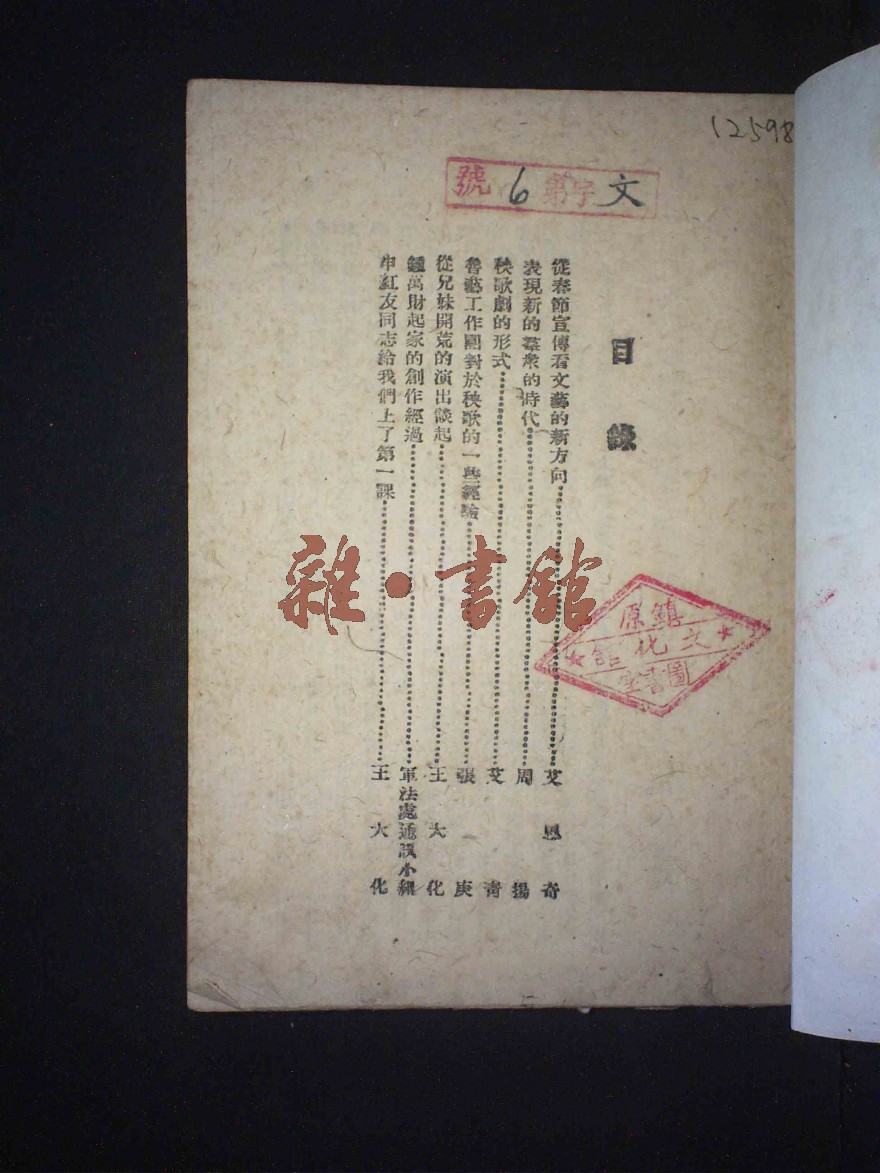 12598
文字第6號
目錄
從春節宣傳看文藝的新方向……艾思奇
表現新的羣衆的時代……周揚
秧歌劇的形式……艾青
魯藝工作團對於秧歌的一些經驗……張庚
從兄妹開荒的演出談起……王大化
鍾萬財起家的創作經過……軍法處通訊小組
申紅友同志給我們上了第一課……王大化
雜·書館
鎮原
文化館
圖書室